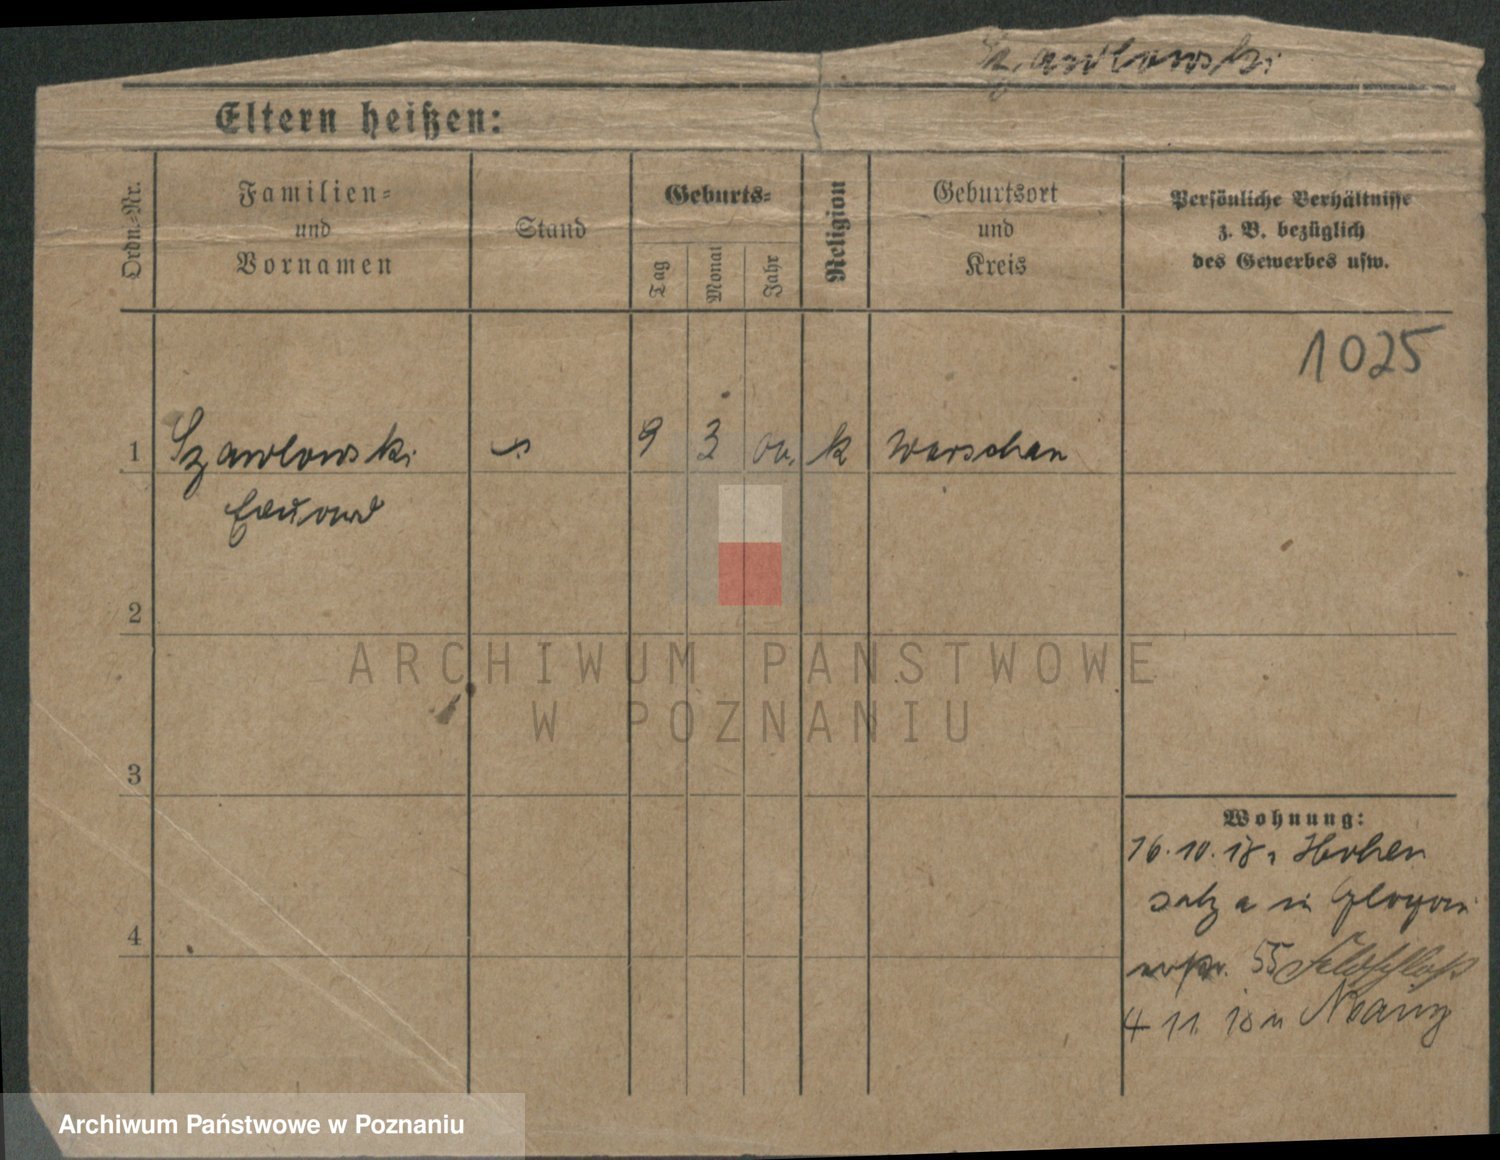 Szawlowski
Eltern heißen:
Ordn.-Nr.
Familien-
und
Vornamen
Stand
Geburts-
Tag
Monat
Jahr
Religion
Geburtsort
und
Kreis
Persönliche Verhältnisse
z. B. bezüglich
des Gewerbes usw.
1025
1 Szawlowski 9 3 00. k Warschau
Eduard
2
ARCHIWUM PAŃSTWOWE
W POZNANIU
3
Wohnung:
16.10.18. Hohen
salza in Glogau
55 Feldschloß
4
4 11. 18 n Mainz
Archiwum Państwowe w Poznaniu